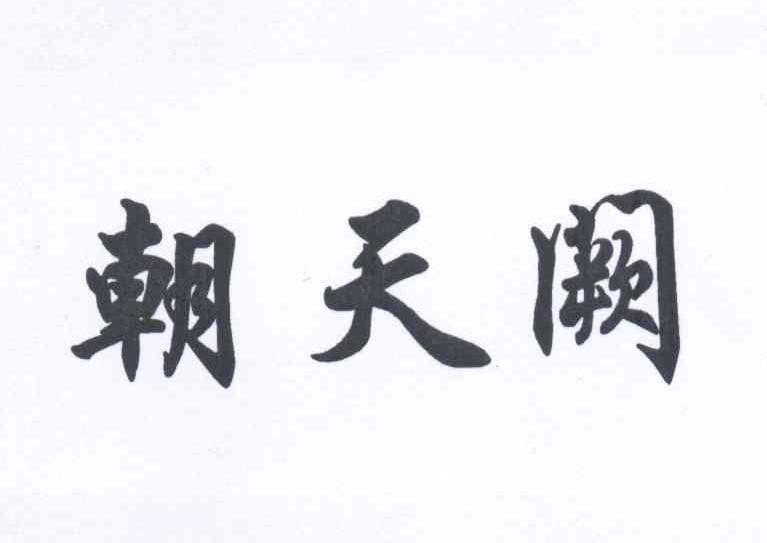 朝天阙